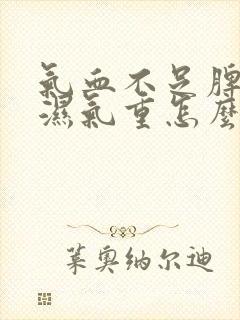 氣血不足脾
濕氣重怎麼
萊奧納尔迪